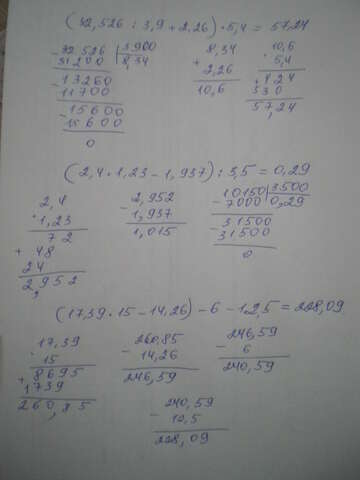 (32,526 : 3,9 + 2,26) · 5,4 = 57,24
- 32 526 | 3900
31200 | 8,34
- 13260
11700
- 15600
15600
0
8,34
+ 2,26
10,6
· 10,6
5,4
+ 424
530
57,24
(2,4 · 1,23 - 1,937) : 3,5 = 0,29
2,4
· 1,23
72
+ 48
24
2,952
- 2,952
1,937
1,015
- 10150 | 3500
7000 | 0,29
- 31500
31500
0
(17,39 · 15 - 14,26) - 6 - 12,5 = 228,09
· 17,39
15
+ 8695
1739
260,85
- 260,85
14,26
246,59
- 246,59
6
240,59
- 240,59
12,5
228,09